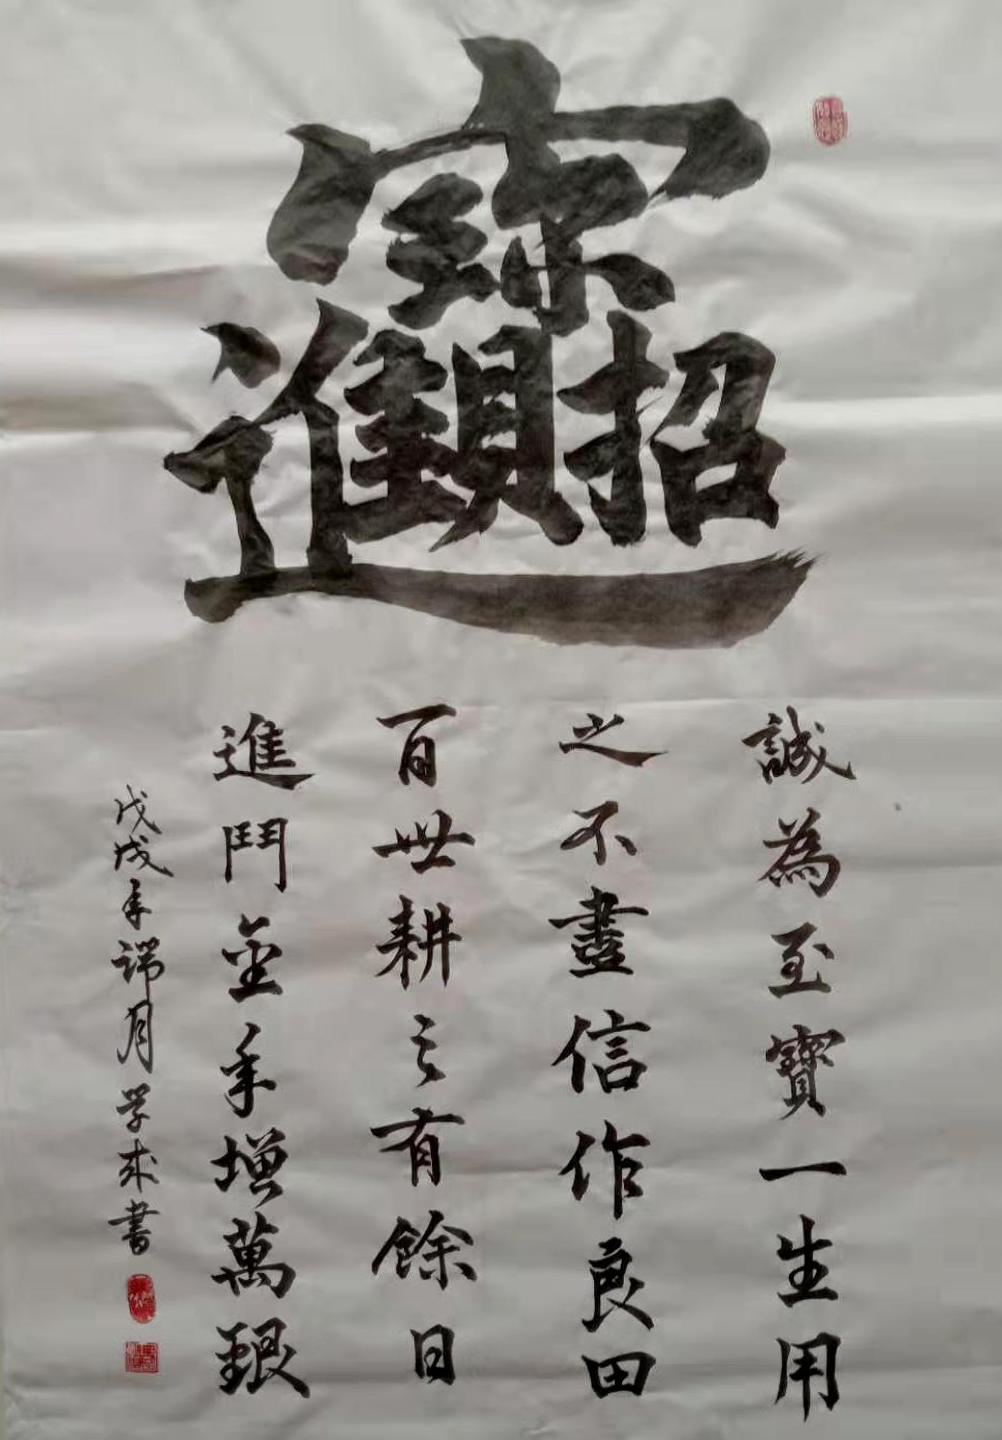 招財進寶
誠為至寶一生用
之不盡信作良田
百世耕之有餘日
進鬥金年增萬銀
戊戌年端月学成書